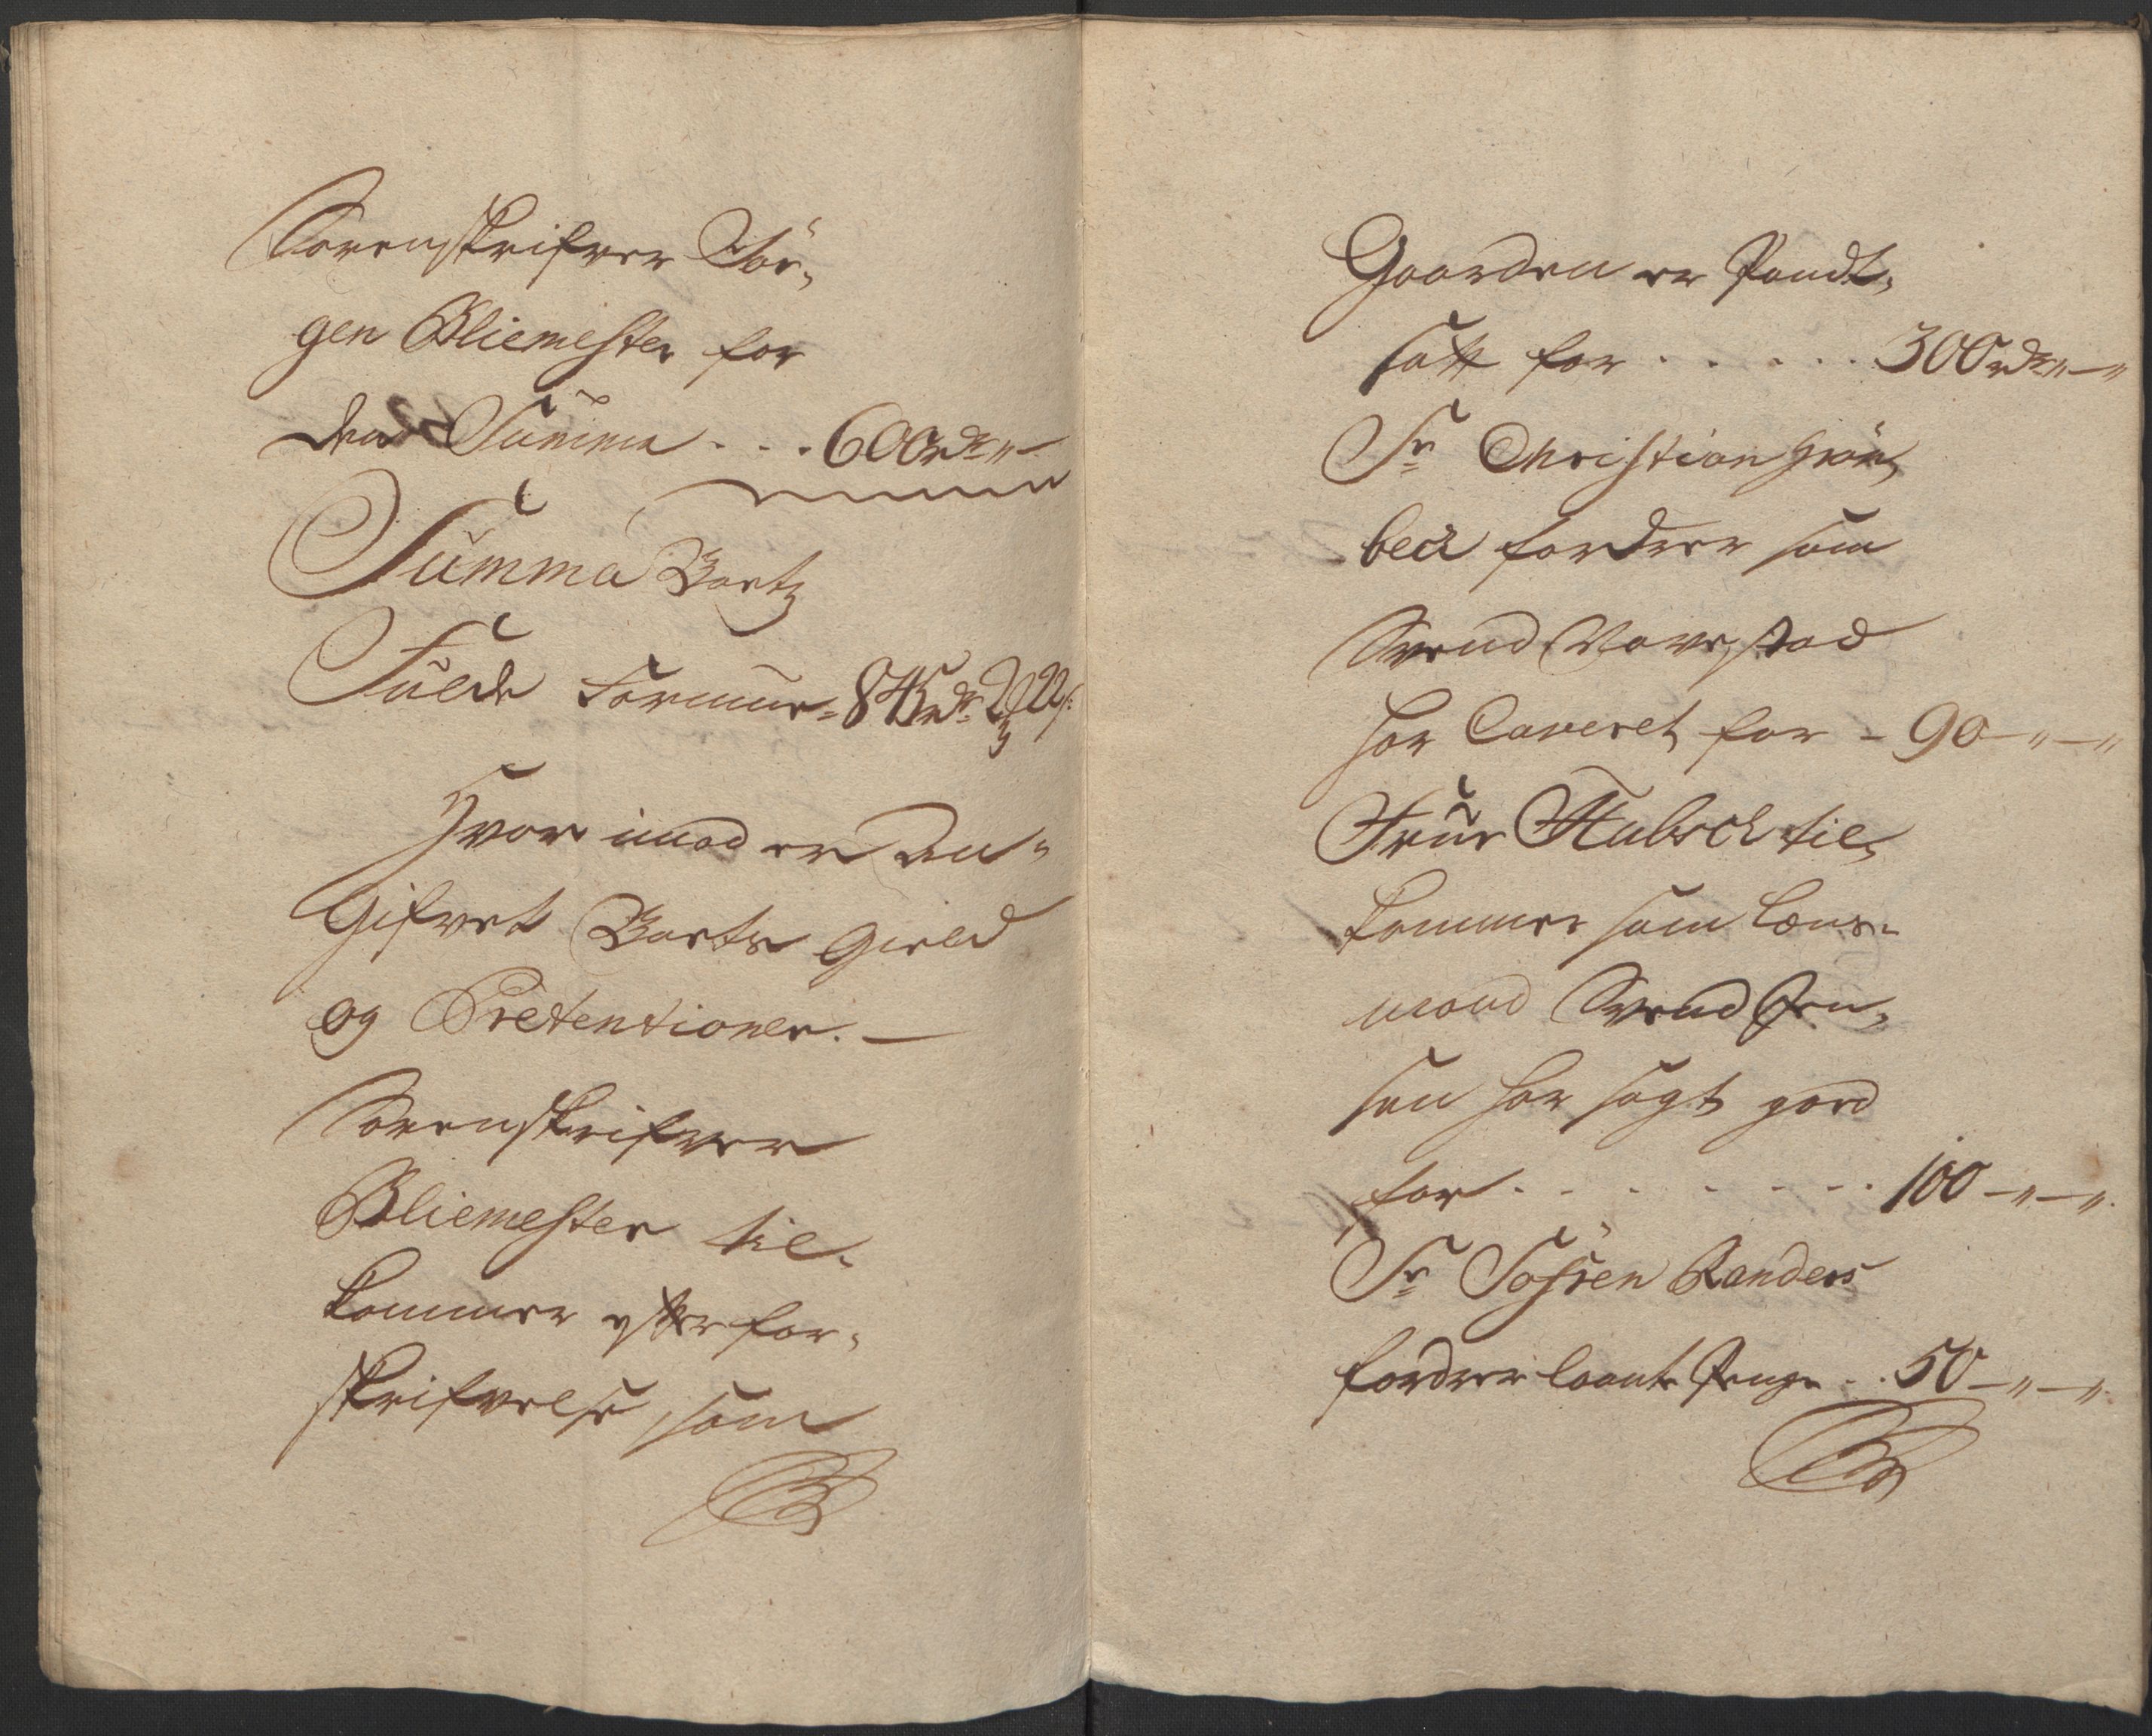 Sorenskrifver Jör„
gen Bliemester for
den Summa . . . 600 rdr „ —
Summa Boets
Fulde Formue = 845 rdr 2 ℳ 22 s:
Hvor imod er An„
Gifvet Boets Gield
og Pretentioner. —
Sorenskrifver
Bliemester til„
kommer efter for„
skrifvelse, som
Gaarden er Pandt„
satt for . . . . . . 300 rdr „ — „
Sr Christian Grön„
beck fordrer som
Svend Vavestad
har Caveret for – 90 – „ – „
Frue Stubsch til„
kommer som Læns„
mand Svend Jen„
sen har sagt god
for . . . . . . . . 100 – „ – „
Sr Sohren Randers
fordrer laante Penge . . 50 – „ – „